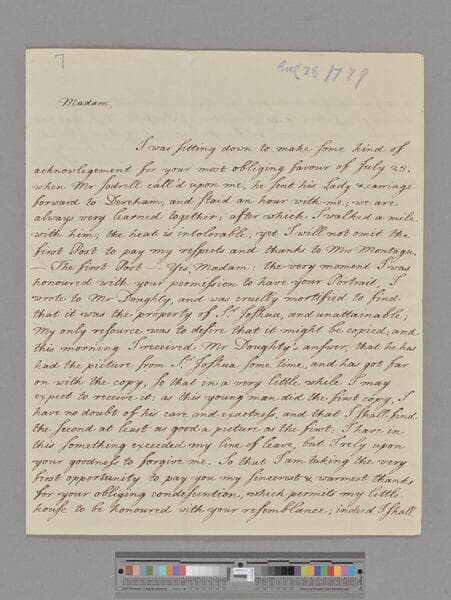 7
Aug 28 1779
Madam.
I was sitting down to make some kind of
acknowlegement for your most obliging favour of July 29.
when Mr Jodrell call'd upon me, he sent his Lady & carriage
forward to Dereham, and staid an hour with me; we are
always very learned together; after which I walked a mile
with him; the heat is intolerable; yet I will not omit the
first Post to pay my respects and thanks to Mrs Montagu.
— The first Post — Yes, Madam: the very moment I was
honoured with your permission to have your Portrait, I
wrote to Mr Doughty, and was cruelly mortified to find
that it was the property of Sr Joshua, and unattainable;
my only resource was to desire that it might be copied, and
this morning I received Mr Doughty's answer, that he has
had the picture from Sr Joshua some time, and has got far
on with the copy, so that in a very little while I may
expect to receive it: as this young man did the first copy, I
have no doubt of his care and exactness, and that I shall find
the second at least as good a picture as the first. I have in
this something exceeded my line of leave, but I rely upon
your goodness to forgive me. So that I am taking the very
first opportunity to pay you my sincerest & warmest thanks
for your obliging condescention, which permits my little
house to be honoured with your resemblance; indeed I shall